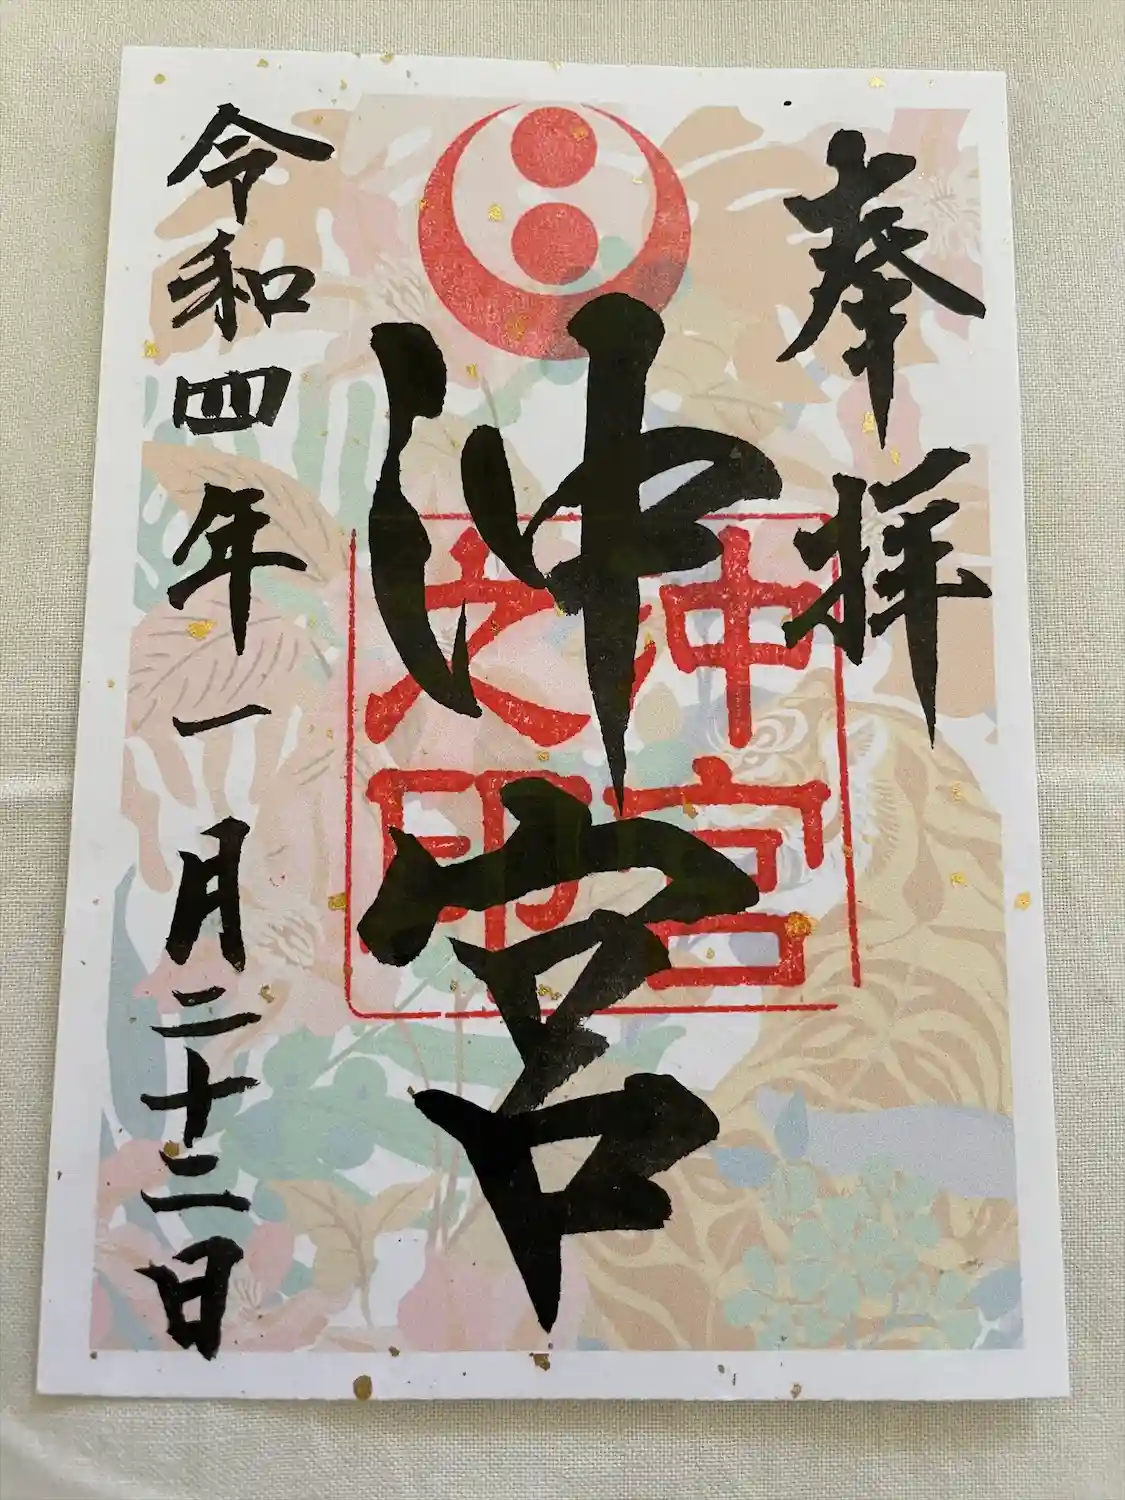 奉拝
沖宮
沖宮之印
令和四年一月二十二日